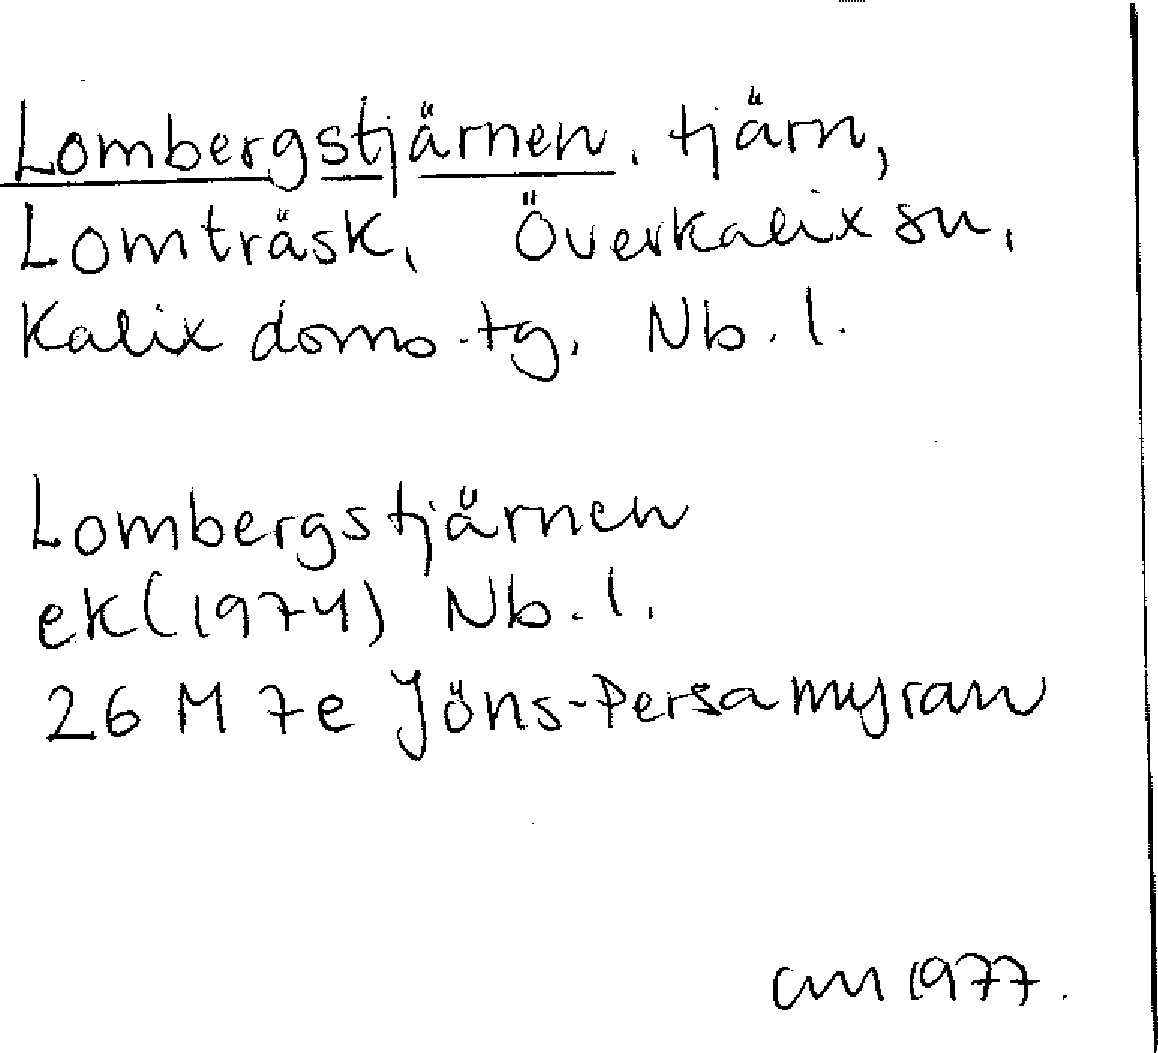 Lombergstjärnen, tjärn,
Lomträsk, Överkalix sn,
Kalix doms.tg, Nb.l.
Lombergstjärnen
ek(1974) Nb.l.
26 M 7e Jöns-Persamyran
1977.